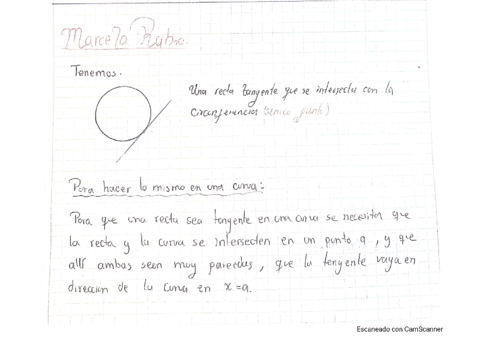 Marcela Rubio.
Tenemos.
Una recta tangente que se intersecta con la
circunferencia (único punto)
Para hacer lo mismo en una curva:
Para que una recta sea tangente en una curva se necesita que
la recta y la curva se intersecten en un punto a, y que
allí ambas sean muy parecidas, que la tangente vaya en
dirección de la curva en x=a.
Escaneado con CamScanner